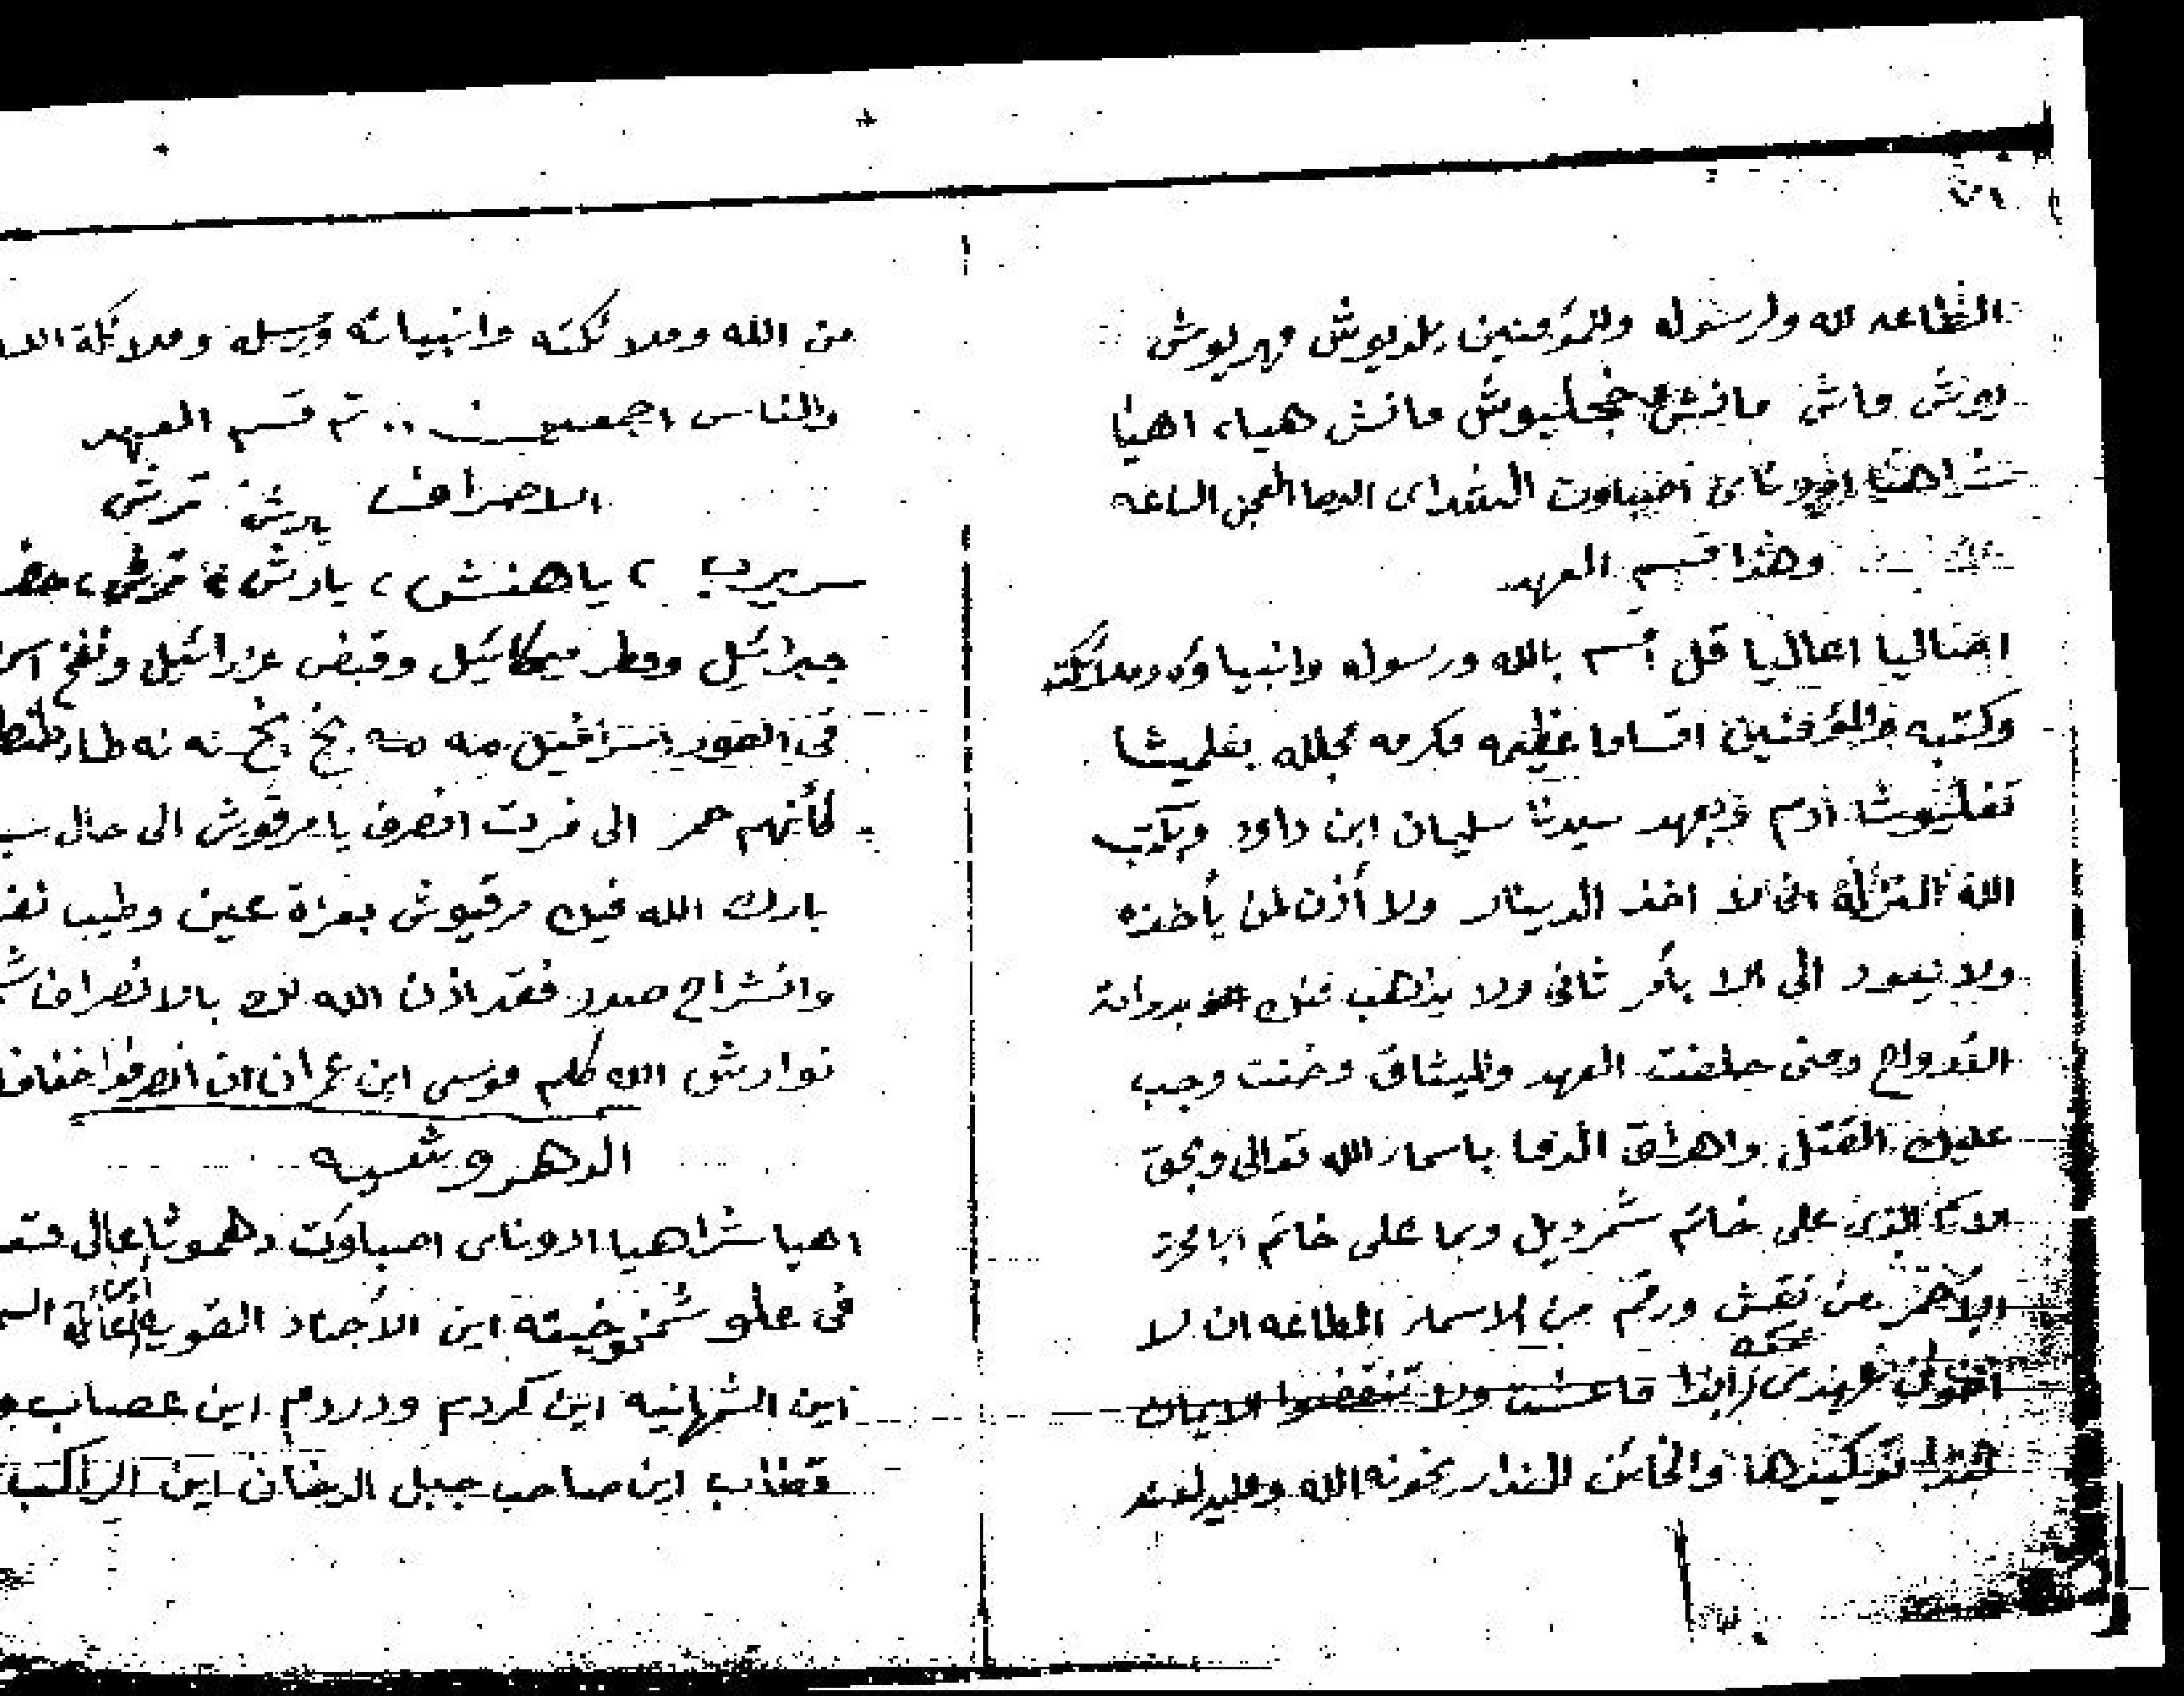 الطاعه لله ولرسوله وللمؤمنين بلديوش مهريوش
روش ماش مانش خجليوش مانش هياء اهيا
شراهيا ادوناى اصباوت الشداى الوحا العجل الساعه
وهذا قسم العهد
اعاليا قل اقسم بالله ورسوله وانبياؤه وملائكته
وكتبه والمؤمنين اقساما عظيمه مكرمه مجلله بغلميشا
آدم وبعهد سيدنا سليمان ابن داود وبكتب
الله المنزله انى لا اخذ الدينار ولا أذن لمن يأخذه
ولا يعود الى الا بأمر ثانى ولا يذهب
ومتى حلفت العهد والميثاق وخنت وجب
عليك القتل واهراق الدما باسماء الله تعالى وبحق
الذى على خاتم شمرديل وبما على خاتم
الاحمر من نقش ورقم من الاسماء المطاعه ان لا
اخون عهدى ابدا ما عشت ولا تنقضوا الايمان
توكيدها والخائن الغدار يخونه الله وعليه لعنة
من الله وملائكته وانبيائه ورسله وملائكة
والناس اجمعين .. تم قسم العهد
الاصراف يارش ترش
سريرب ، ياهنش ، يارش ،
جبرائيل ومطر ميكائيل وقبض عزرائيل ونفخ
فى الصور اسرافيل مه مه بخ بخ نه نه طار
كأنهم حمر الى فرت انصرف يا مرقوش الى حال
بارك الله فيك مرقيوش بعزة عين وطيب
وانشراح صدور فقد اذن الله لك بالانصراف
نوارش الله كلم موسى ابن عمران ان انصرفوا خفافا
الدهروشيه
اهيا شراهيا ادوناى اصباوت دهموثا عالى
فى علو شمخوخيته اين الاجناد القويه
اين الشهانيه اين كردم ودردم اين عصاب
قعذاب اين صاحب جبل الدخان اين الراكب